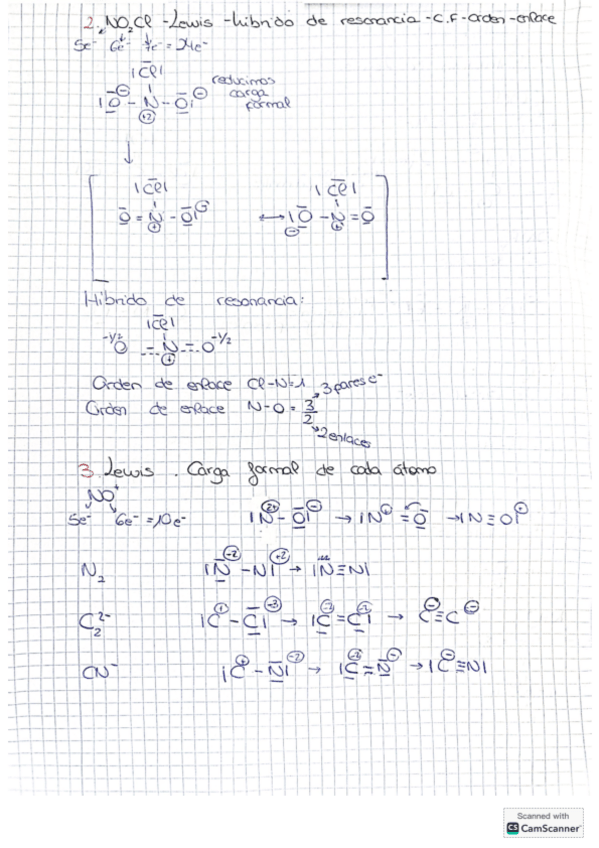 2. NO₂Cl - Lewis - híbrido de resonancia - C.F - orden - enlace
5e⁻ 6e⁻ 7e⁻ = 24e⁻
|Cl|
|O⊖ - N - O|⊖ reducimos carga formal
(+2)
↓
|Cl| |Cl|
O = N - O|⊖ ⟷ |O - N = O
⊕ ⊖ ⊕
Híbrido de resonancia:
|Cl|
-1/2 O = N = O -1/2
⊕
Orden de enlace Cl-N=1 → 3 pares e⁻
Orden de enlace N-O = 3/2
→ 2 enlaces
3. Lewis . Carga formal de cada átomo
NO⁺
5e⁻ 6e⁻ = 10e⁻ |N - O| → |N = O → |N ≡ O|
N₂ |N - N| → |N ≡ N|
C₂²⁻ |C - C| → |C = C| → C ≡ C
CN⁻ |C - N| → |C = N → |C ≡ N|
Scanned with
CS CamScanner